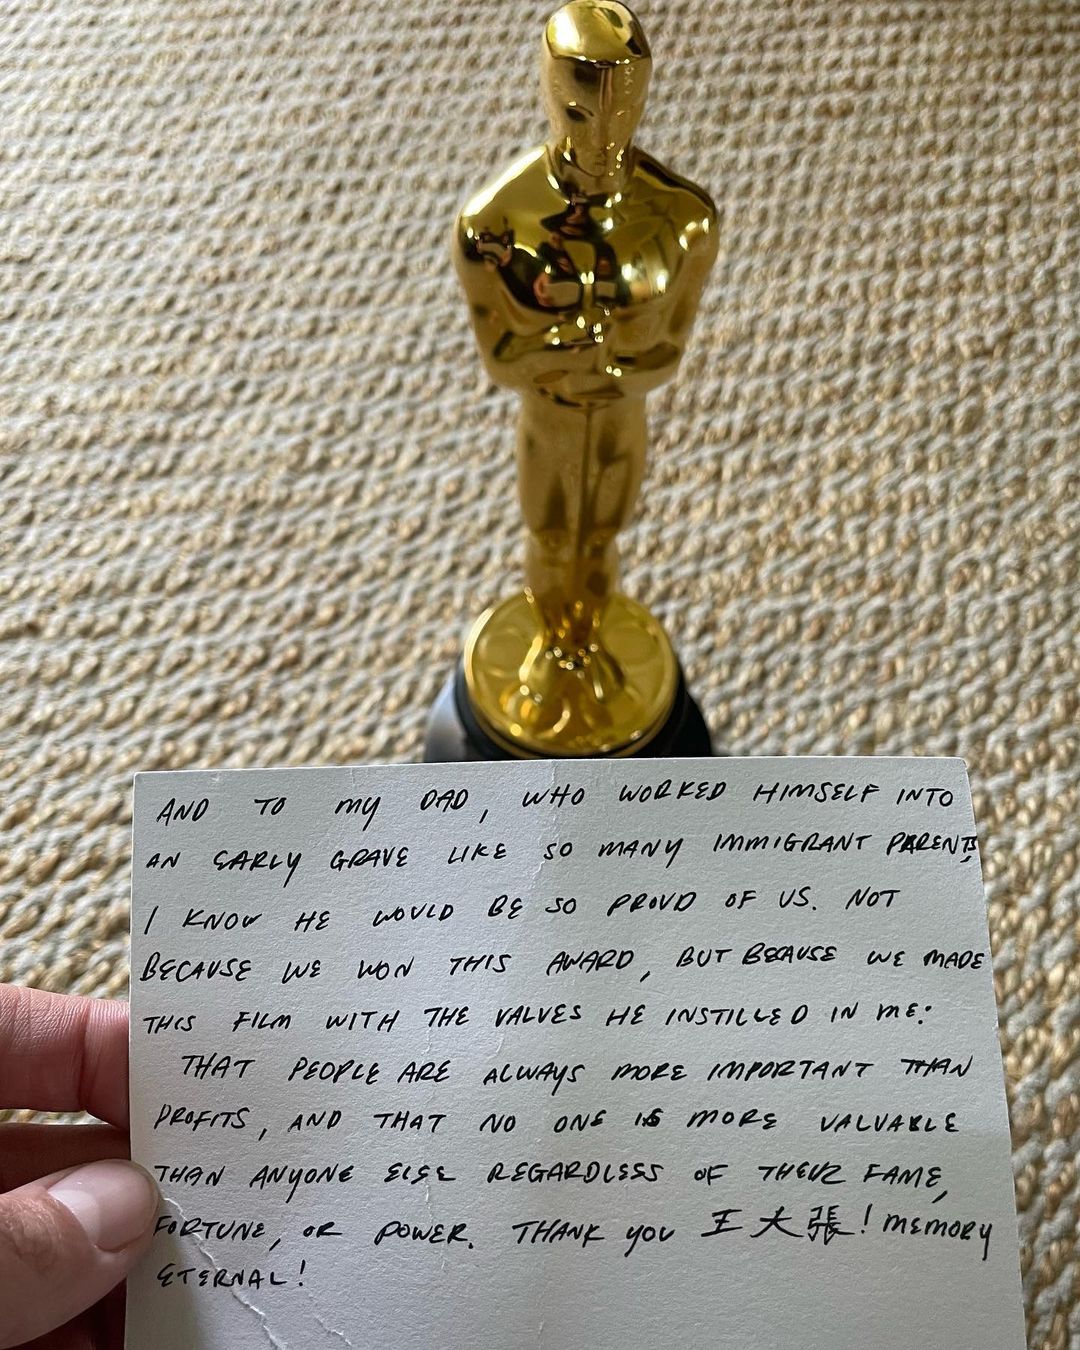 AND TO MY DAD, WHO WORKED HIMSELF INTO
AN EARLY GRAVE LIKE SO MANY IMMIGRANT PARENTS,
I KNOW HE WOULD BE SO PROUD OF US. NOT
BECAUSE WE WON THIS AWARD, BUT BECAUSE WE MADE
THIS FILM WITH THE VALUES HE INSTILLED IN ME:
THAT PEOPLE ARE ALWAYS MORE IMPORTANT THAN
PROFITS, AND THAT NO ONE IS MORE VALUABLE
THAN ANYONE ELSE REGARDLESS OF THEIR FAME,
FORTUNE, OR POWER. THANK YOU 王大張! MEMORY
ETERNAL!